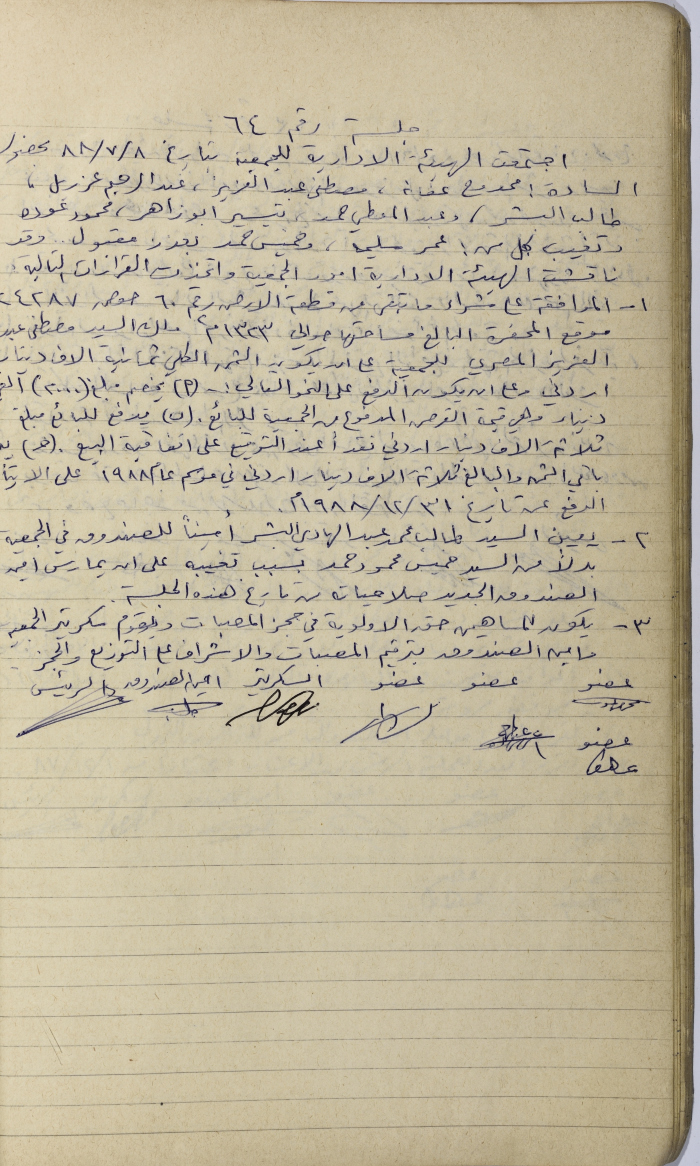 جلسة رقم ٦٤
اجتمعت الهيئة الادارية للجمعية بتاريخ ٨٨/٧/٨ بحضور
السادة: ممدوح عفانة، مصطفى عبد العزيز، عبد الرحيم عزريل،
طالب البشر، وعبد المعطي حمد، تيسير ابو زاهر، محمود عوده
وتغيب كل من: عمر سليم، وخميس حمد بعذر مقبول. وقد
ناقشت الهيئة الادارية امور الجمعية واتخذت القرارات التالية:
١- الموافقة على شراء ما تبقى من قطعة الارض رقم ٦٠ حوض ٢٤٢٨٧
موقع المحفرة البالغ مساحتها حوالي ١٣٣٣م٢ ملك السيد مصطفى عبد
العزيز المصري للجمعية على ان يكون الثمن الكلي ثمانية الاف دينار
اردني وعلى ان يكون الدفع على النحو التالي:- (أ) يخصم مبلغ (٢٠٠٠)
دينار وهي قيمة القرض المدفوع من الجمعية للبائع. (ب) يدفع للبائع مبلغ
ثلاثة الاف دينار اردني نقداً عند التوقيع على اتفاقية البيع. (ج)
باقي الثمن والبالغ ثلاثة الاف دينار اردني في موسم عام ١٩٨٨ على الا
الدفع عن تاريخ ١٩٨٨/١٢/٣١م.
٢- يعين السيد طالب محمد عبد الهادي البشر أميناً للصندوق في الجمعية
بدلاً من السيد خميس محمود حمد بسبب تغيبه على ان يمارس امين
الصندوق الجديد صلاحياته من تاريخ هذه الجلسة.
٣- يكون للمساهمين حق الاولوية في حجز المصبات ويقوم سكرتير الجمعية
وامين الصندوق بترقيم المصبات والاشراف على التوزيع والحجز.
عضو عضو عضو السكرتير امين الصندوق الرئيس
عضو